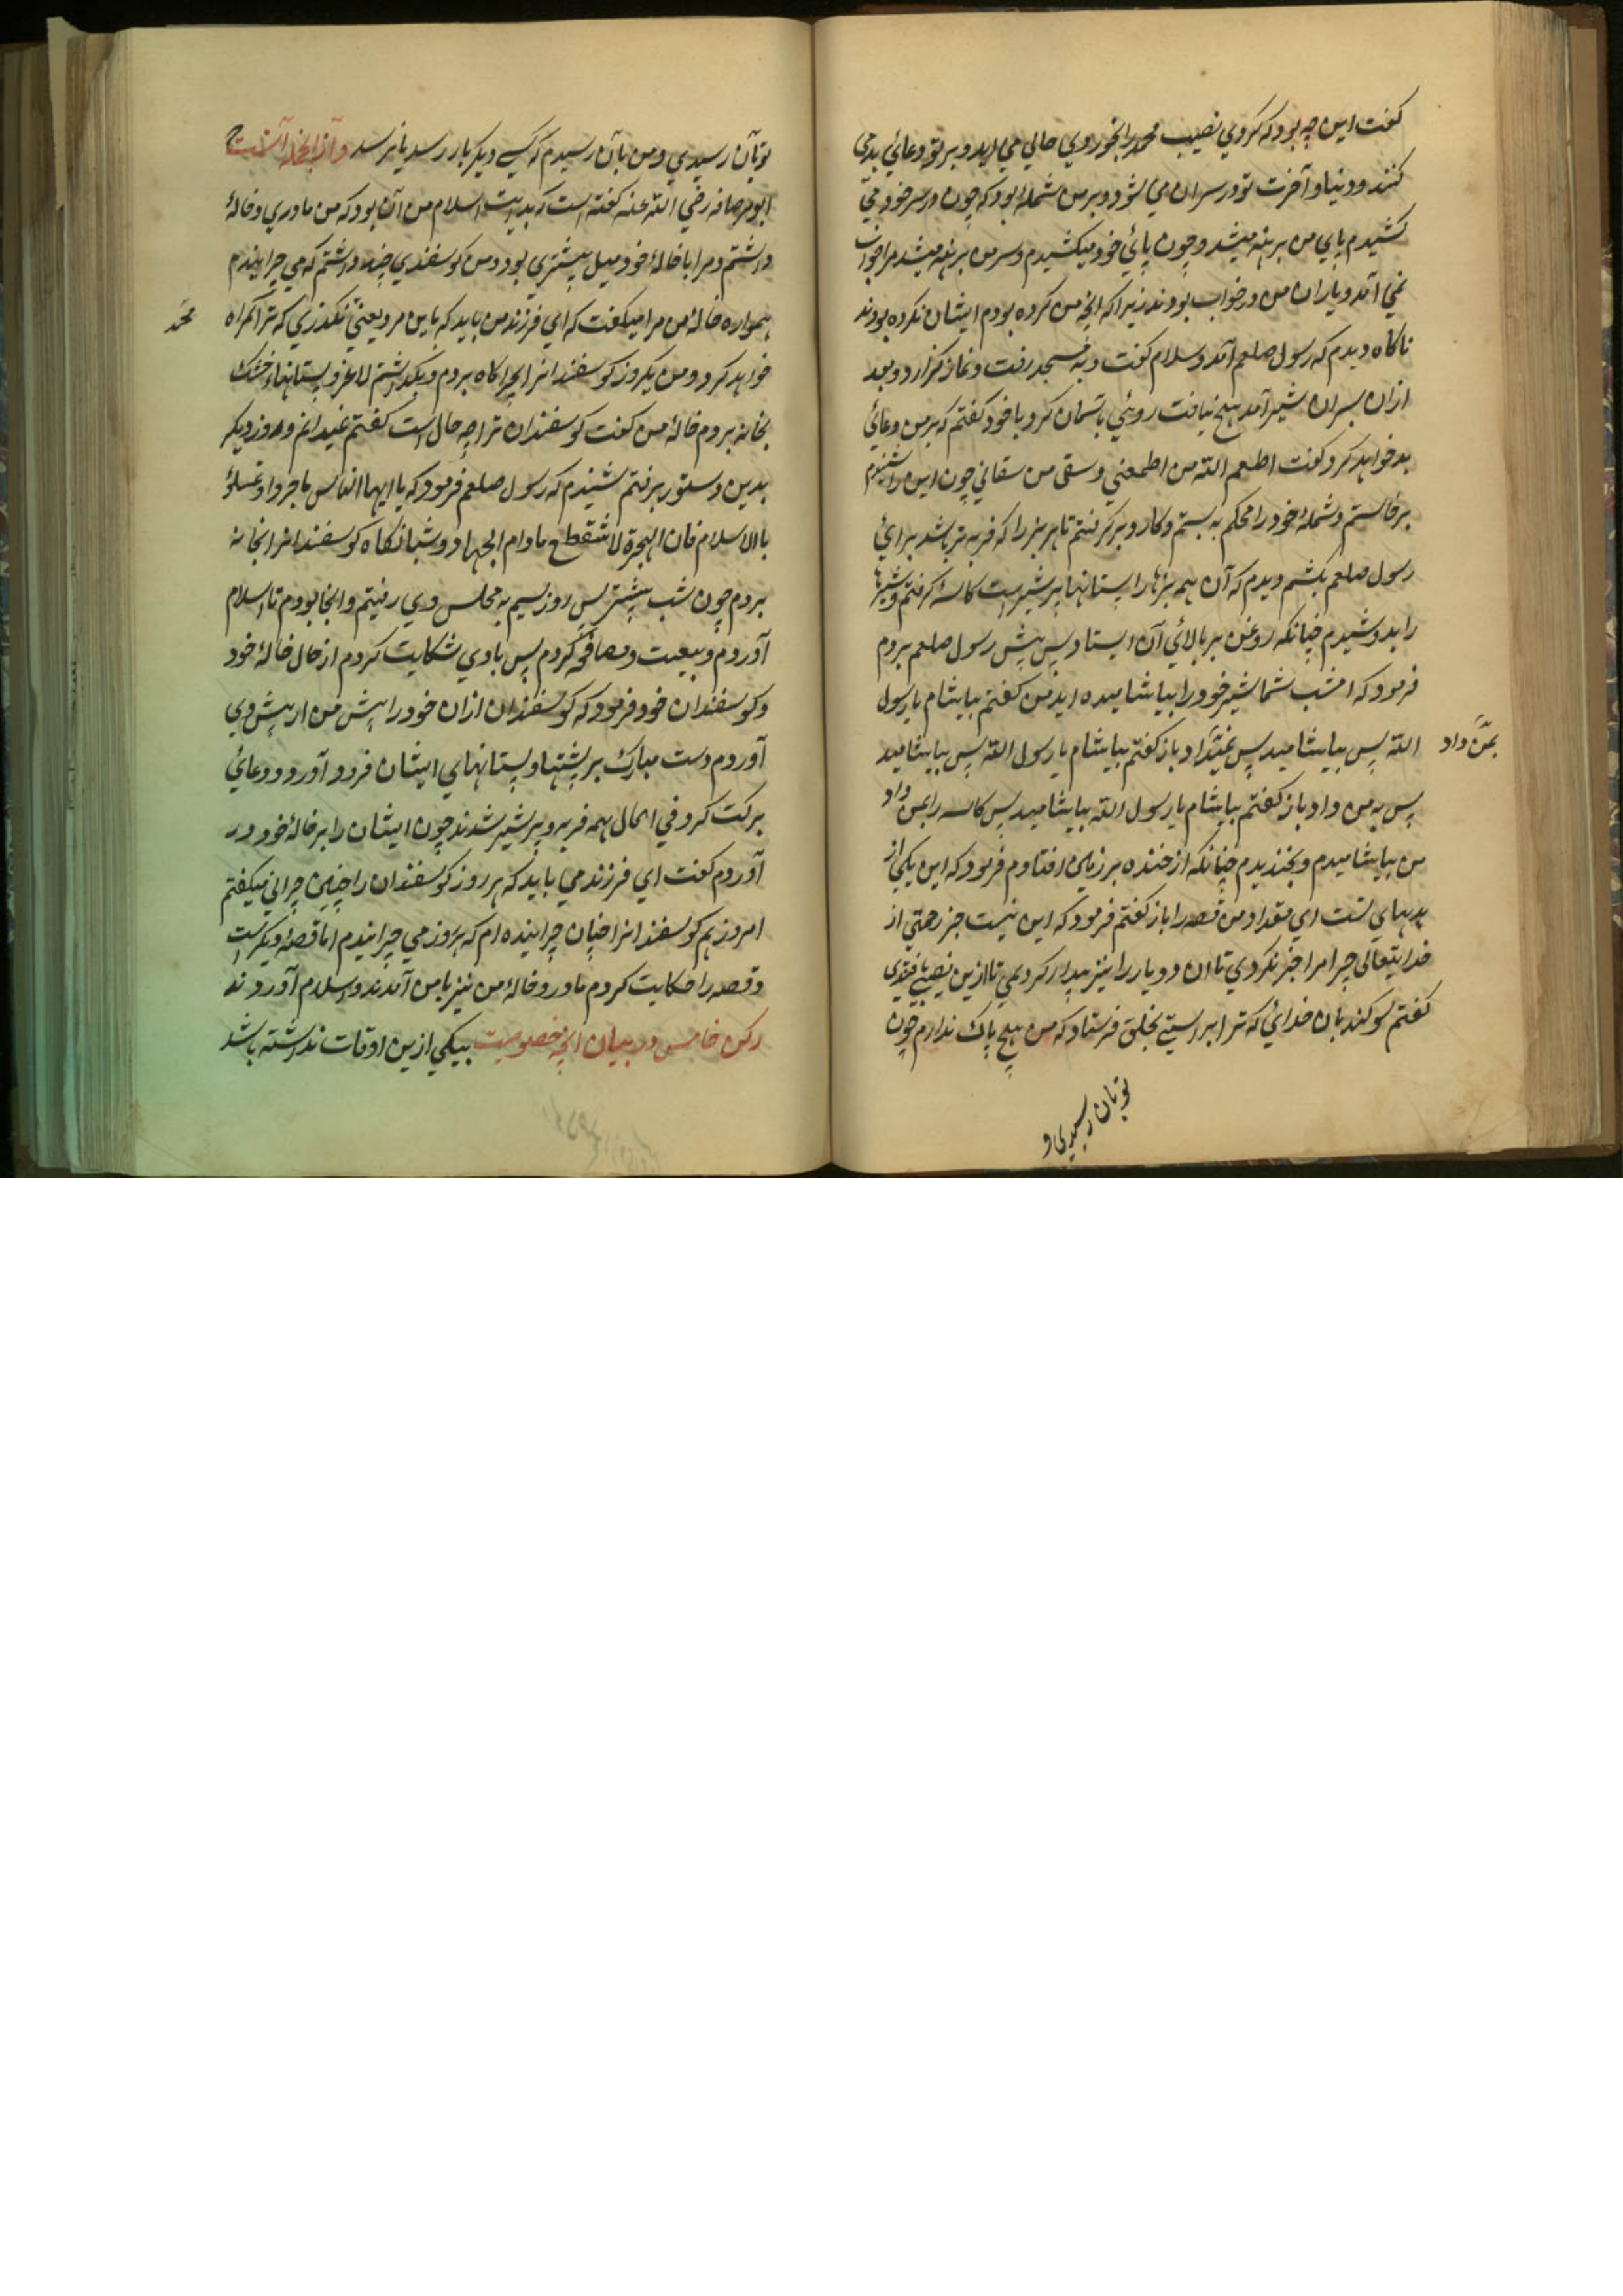 گفت این چه بود که کردی نصیب محمد را بخوردی حالی می آید و بر تو دعائی بد می
کنند و دنیا و آخرت تو در سر آن می شود و بر من شمله بود که چون در سر خود می
کشیدم پای من برهنه میشد و چون پائی خود میکشیدم و سر من برهنه میشد مرا خواب
نمی آمد و یاران من در خواب بودند زیرا که آنچه من کرده بودم ایشان نکرده بودند
ناگاه دیدم که رسول صلعم آمد و سلام گفت و به مسجد رفت و نماز گزارد و بعد
ازان بسران شیر آمد هیچ نیافت روئی باسمان کرد با خود گفتم که بر من دعائی
بد خواهد کرد گفت اطعم الله من اطعمنی و سقی من سقانی چون این را شنیدم
برخاستم و شمله خود را محکم به بستم و کارد برگرفتم تا هر بز را که فربه تر باشد برائی
رسول صلعم بکشم دیدم که آن همه بزها را پستانها پر شیر است کاسه گرفتم و شیرها
را بدوشیدم چنانکه روغن بر بالائی آن ایستاد پس پیش رسول صلعم بردم
فرمود که امشب شما شیر خود را بیاشامیده اید من گفتم بیاشام یا رسول
الله پس بیاشامید پس بمن داد باز گفتم بیاشام یا رسول الله پس بیاشامید
بمن داد
پس به من داد باز گفتم بیاشام یا رسول الله بیاشامید پس کاسه را بمن داد
من بیاشامیدم و بخندیدم چنانکه از خنده بر زمین افتادم فرمود که این یکی از
بدیهای تست ای مقداد من قصه را باز گفتم فرمود که این نیست جز رحمتی از
خدایتعالی چرا مرا خبر نکردی تا آن دو یار را نیز بیدار کردمی تا ازین نصیبی یافتندی
گفتم سوگند بان خدائی که ترا براستی بخلق فرستاد که من هیچ باک ندارم چون
تو بآن رسیدی و
تو بآن رسیدی و من بآن رسیدم که کسی دیگر بار رسد یا نرسد و از آنجمله آنست
ابوقرصافه رضی الله عنه گفته است که بدایت اسلام من آن بود که من مادری و خالهٔ
داشتم و مرا با خالهٔ خود میل بیشتری بود و من گوسفندی چند داشتم که می چرانیدم
همواره خالهٔ من مرا میگفت که ای فرزند من باید که باین مرد یعنی نگذری که ترا گمراه
محمد
خواهد کرد و من یکروز گوسفندانرا بچراگاه بردم و بگذاشتم لاغر و پستانها خشک
بخانه بردم خالهٔ من گفت گوسفندان ترا چه حال است گفتم نمیدانم و روز دیگر
بدین دستور برفتم شنیدم که رسول صلعم فرمود که یا ایها الناس هاجروا و تمسکوا
بالاسلام فان الهجرة لا تنقطع مادام الجهاد و شبانگاه گوسفندانرا بخانه
بردم چون شب پیشتر پس روز سیم به مجلس وی رفتیم و آنجا بودم تا اسلام
آوردم و بیعت و مصافحه کردم پس با وی شکایت کردم از حال خالهٔ خود
و گوسفندان خود فرمود که گوسفندان ازان خود را پیش من آر پیش وی
آوردم دست مبارک بر پشتها و پستانهای ایشان فرود آورد و دعائی
برکت کرد فی الحال همه فربه و پر شیر شدند چون ایشان را بر خالهٔ خود در
آوردم گفت ای فرزند می باید که هر روز گوسفندان را چنین چرانی میگفتم
امروز هم گوسفندانرا چنان چرانیده ام که هر روز می چرانیدم اما قصهٔ دیگر است
و قصه را حکایت کردم مادر و خالهٔ من نیز با من آمدند و اسلام آوردند
رکن خامس در بیان آنچه خصوصیت بیکی ازین اوقات نداشته باشد